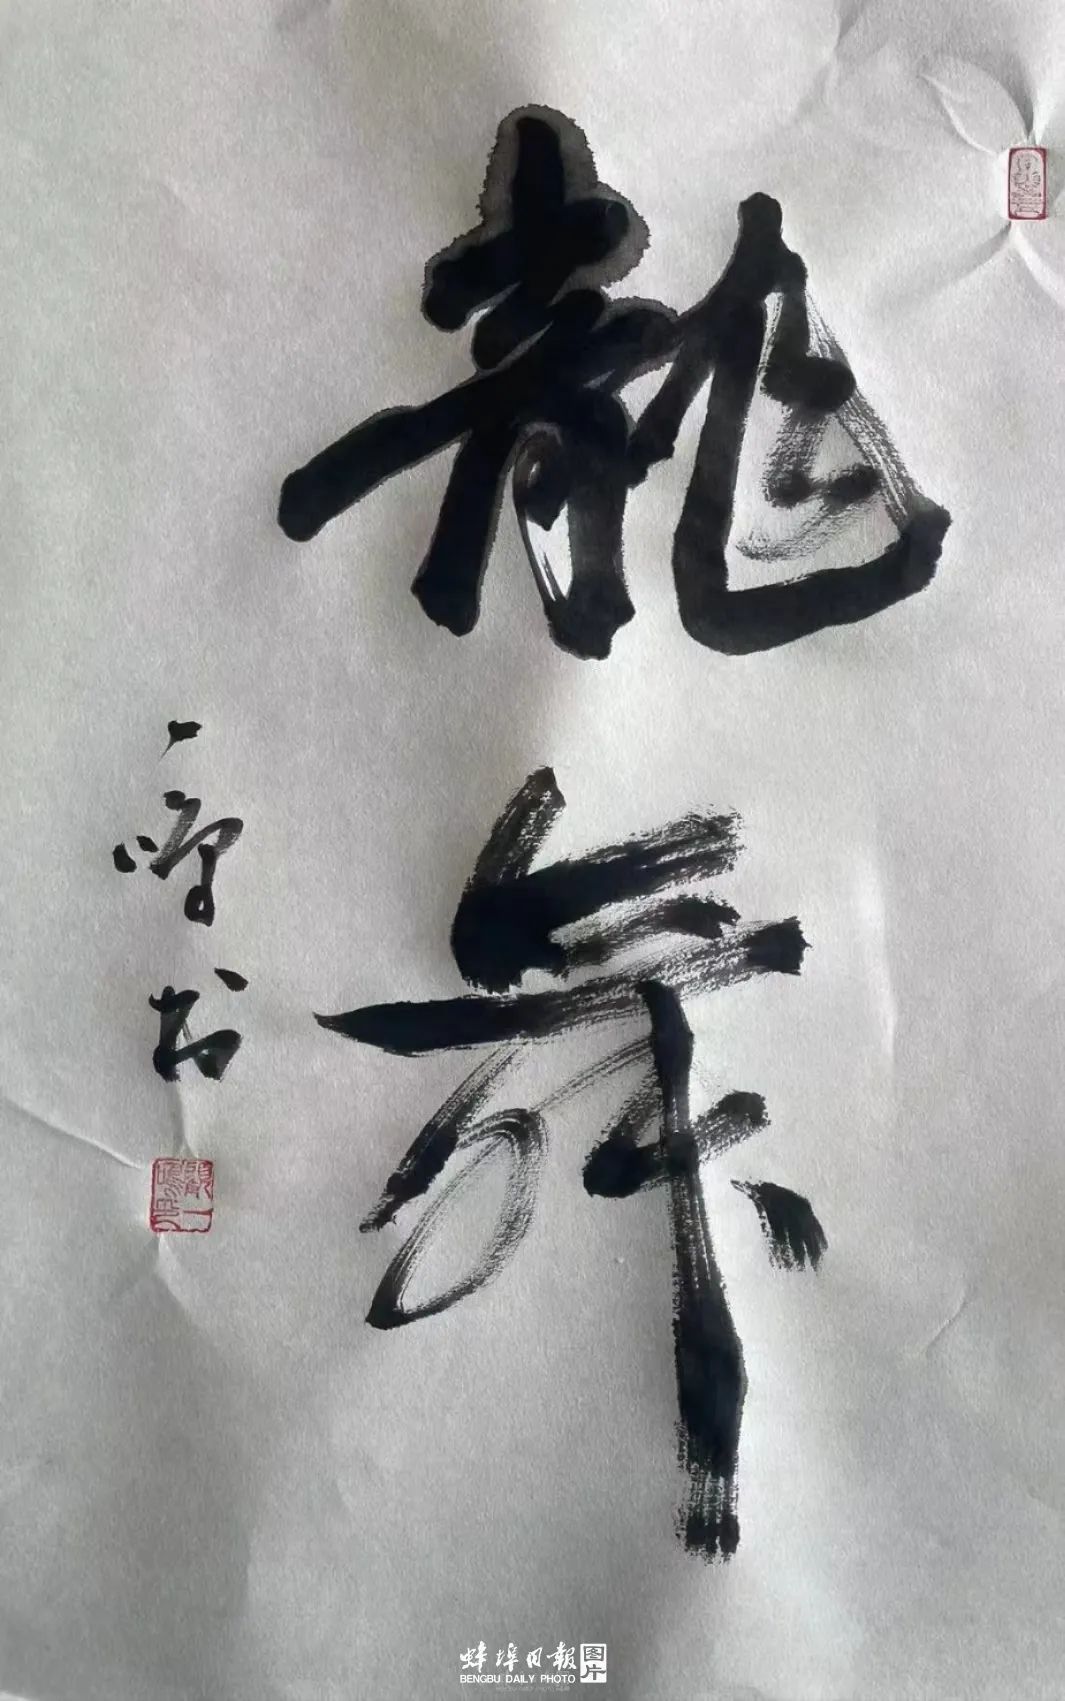 龍舞
一鸣书
蚌埠日報 图片
BENGBU DAILY PHOTO